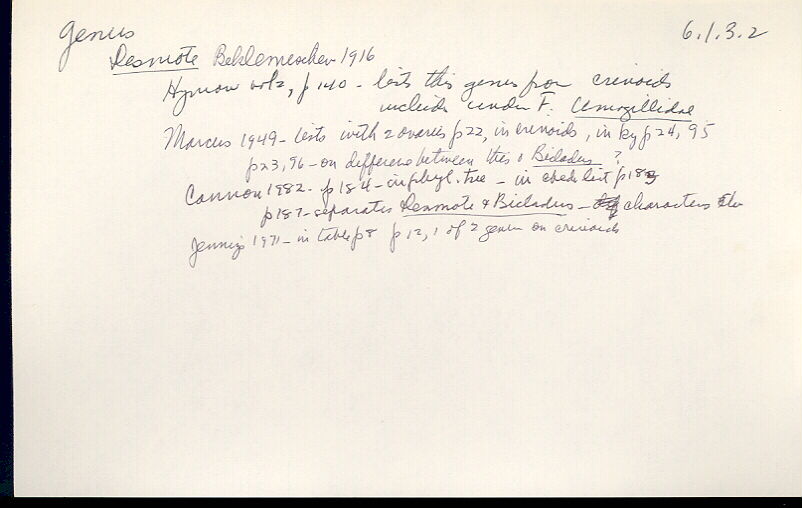 Genus
6.1.3.2
Desmote Beklemeschev 1916
Hyman vol 2, p 140 - lists this genus from crinoids
includes under F. Umagillidae
Marcus 1949 - lists with 2 ovaries p22, in crinoids, in key p24, 95
p23, 96 - on difference between this & Bicladus ?
Cannon 1982 - p184 - in phyl. tree - in check list p183
p187 - separates Desmote & Bicladus - characters
Jennings 1971 - in table p8 p12, 1 of 2 genera on crinoids